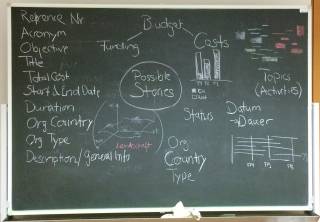 Reference Nr
Acronym
Objective
Title
Total Cost
Start & End Date
Duration
Org Country
Org Type
Description/general Info
Budget
Funding
Costs
Possible
Stories
Landschaft
Topics
(Activities)
Status
Datum
→ Dauer
Org
Country
Type